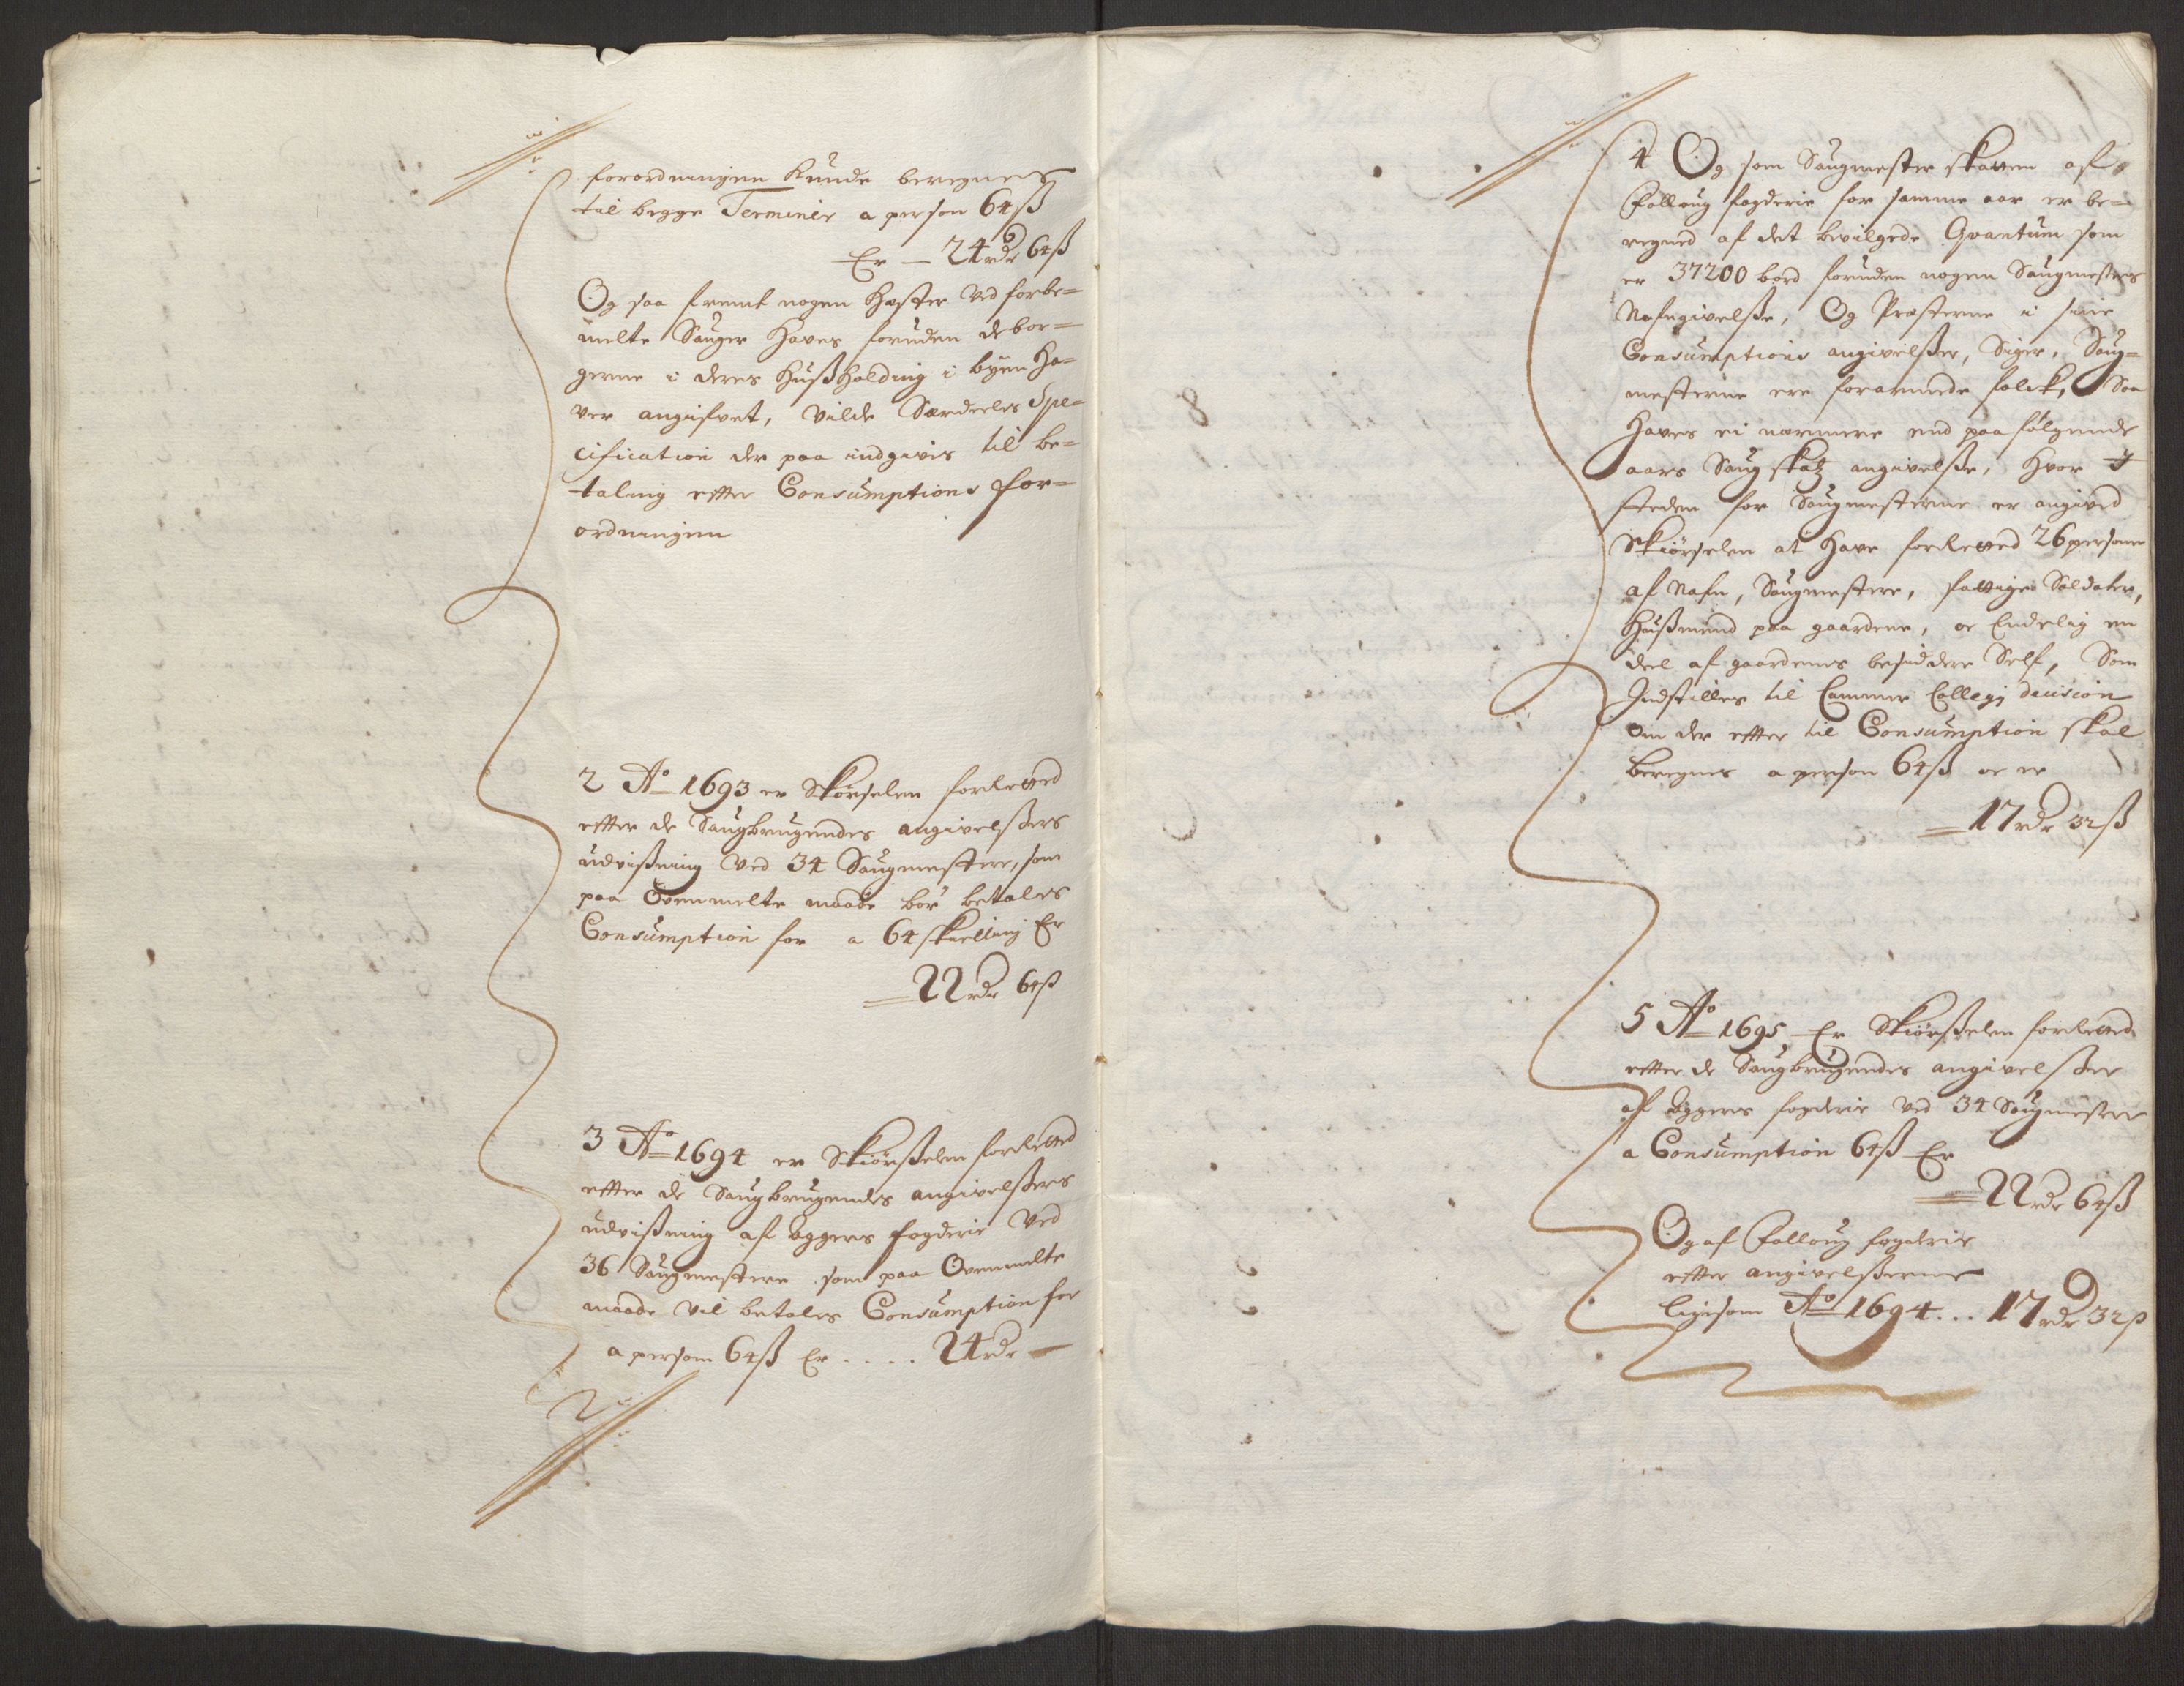 forordningen Kunde beregnes
til begge Terminer a person 64ß
Er — 24 rdr 64ß
Og saa fremt nogen Hester ved forbe=
melte Sauger Haves foruden de bor=
gerne i deres Hußholding i byen Ha=
ver angifvet, vilde Særdeeles Spe=
cification der paa indgivis til be=
taling efter Consumptions for=
ordningen
2 Ao 1693 er Skørselen forretted
efter de Saugbrugendes angivelßers
udvißning ved 34 Saugmestere, som
paa Ovenmelte maade bør betales
Consumption for a 64 skielling Er
22 rdr 64ß
3 Ao 1694 er Skiørßelen forrettet
efter de Saugbrugendes angivelßers
udvißning af Aggers fogderie ved
36 Saugmestere som paa Ovenmelte
maade vil betales Consumption for
a person 64ß Er .... 24 rdr —
4 Og som Saugmester skatten af
Folloug fogderie for samme aar er be=
regned af det bevilgede Qvantum som
er 37200 bord foruden nogen Saugmesters
Nafngivelße, Og Præsterne i sine
Consumptions angivelßer, Siger, Saug=
mesterne ere forarmede folck, Saa
Haves ei nærmere end paa følgende
aars Saug skatz angivelße, Hvor
steden for Saugmesterne er angived
Skiørselen at Have forretted 26 personer
af Nafn, Saugmestere, fattige Soldater,
Hußmend paa gaardene, oc Endelig en
deel af gaardenes besiddere Self, Som
Indstilles til Cammer Collegij decision
om der efter til Consumption skal
beregnes a person 64ß oc er
17 rdr 32ß
5 Ao 1695 Er Skiørßelen forretted
efter de Saugbrugendes angivelßer
af Aggers fogderie ved 34 Saugmestere
a Consumption 64ß Er
22 rdr 64ß
Og af Folloug fogderie
efter angivelßerne
ligesom Ao 1694... 17 rdr 32ß